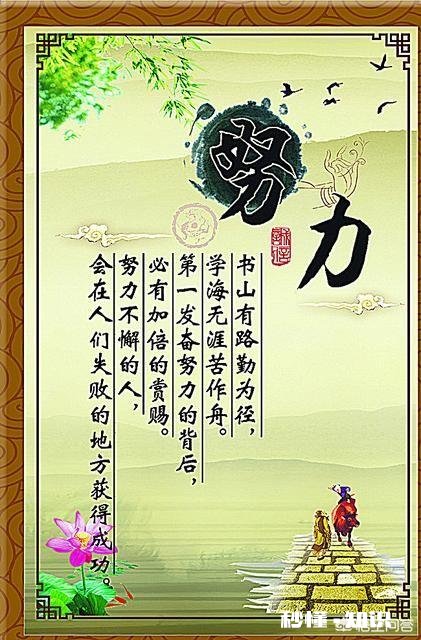 努力
书山有路勤为径，
学海无涯苦作舟。
第一发奋努力的背后，
必有加倍的赏赐。
努力不懈的人，
会在人们失败的地方获得成功。